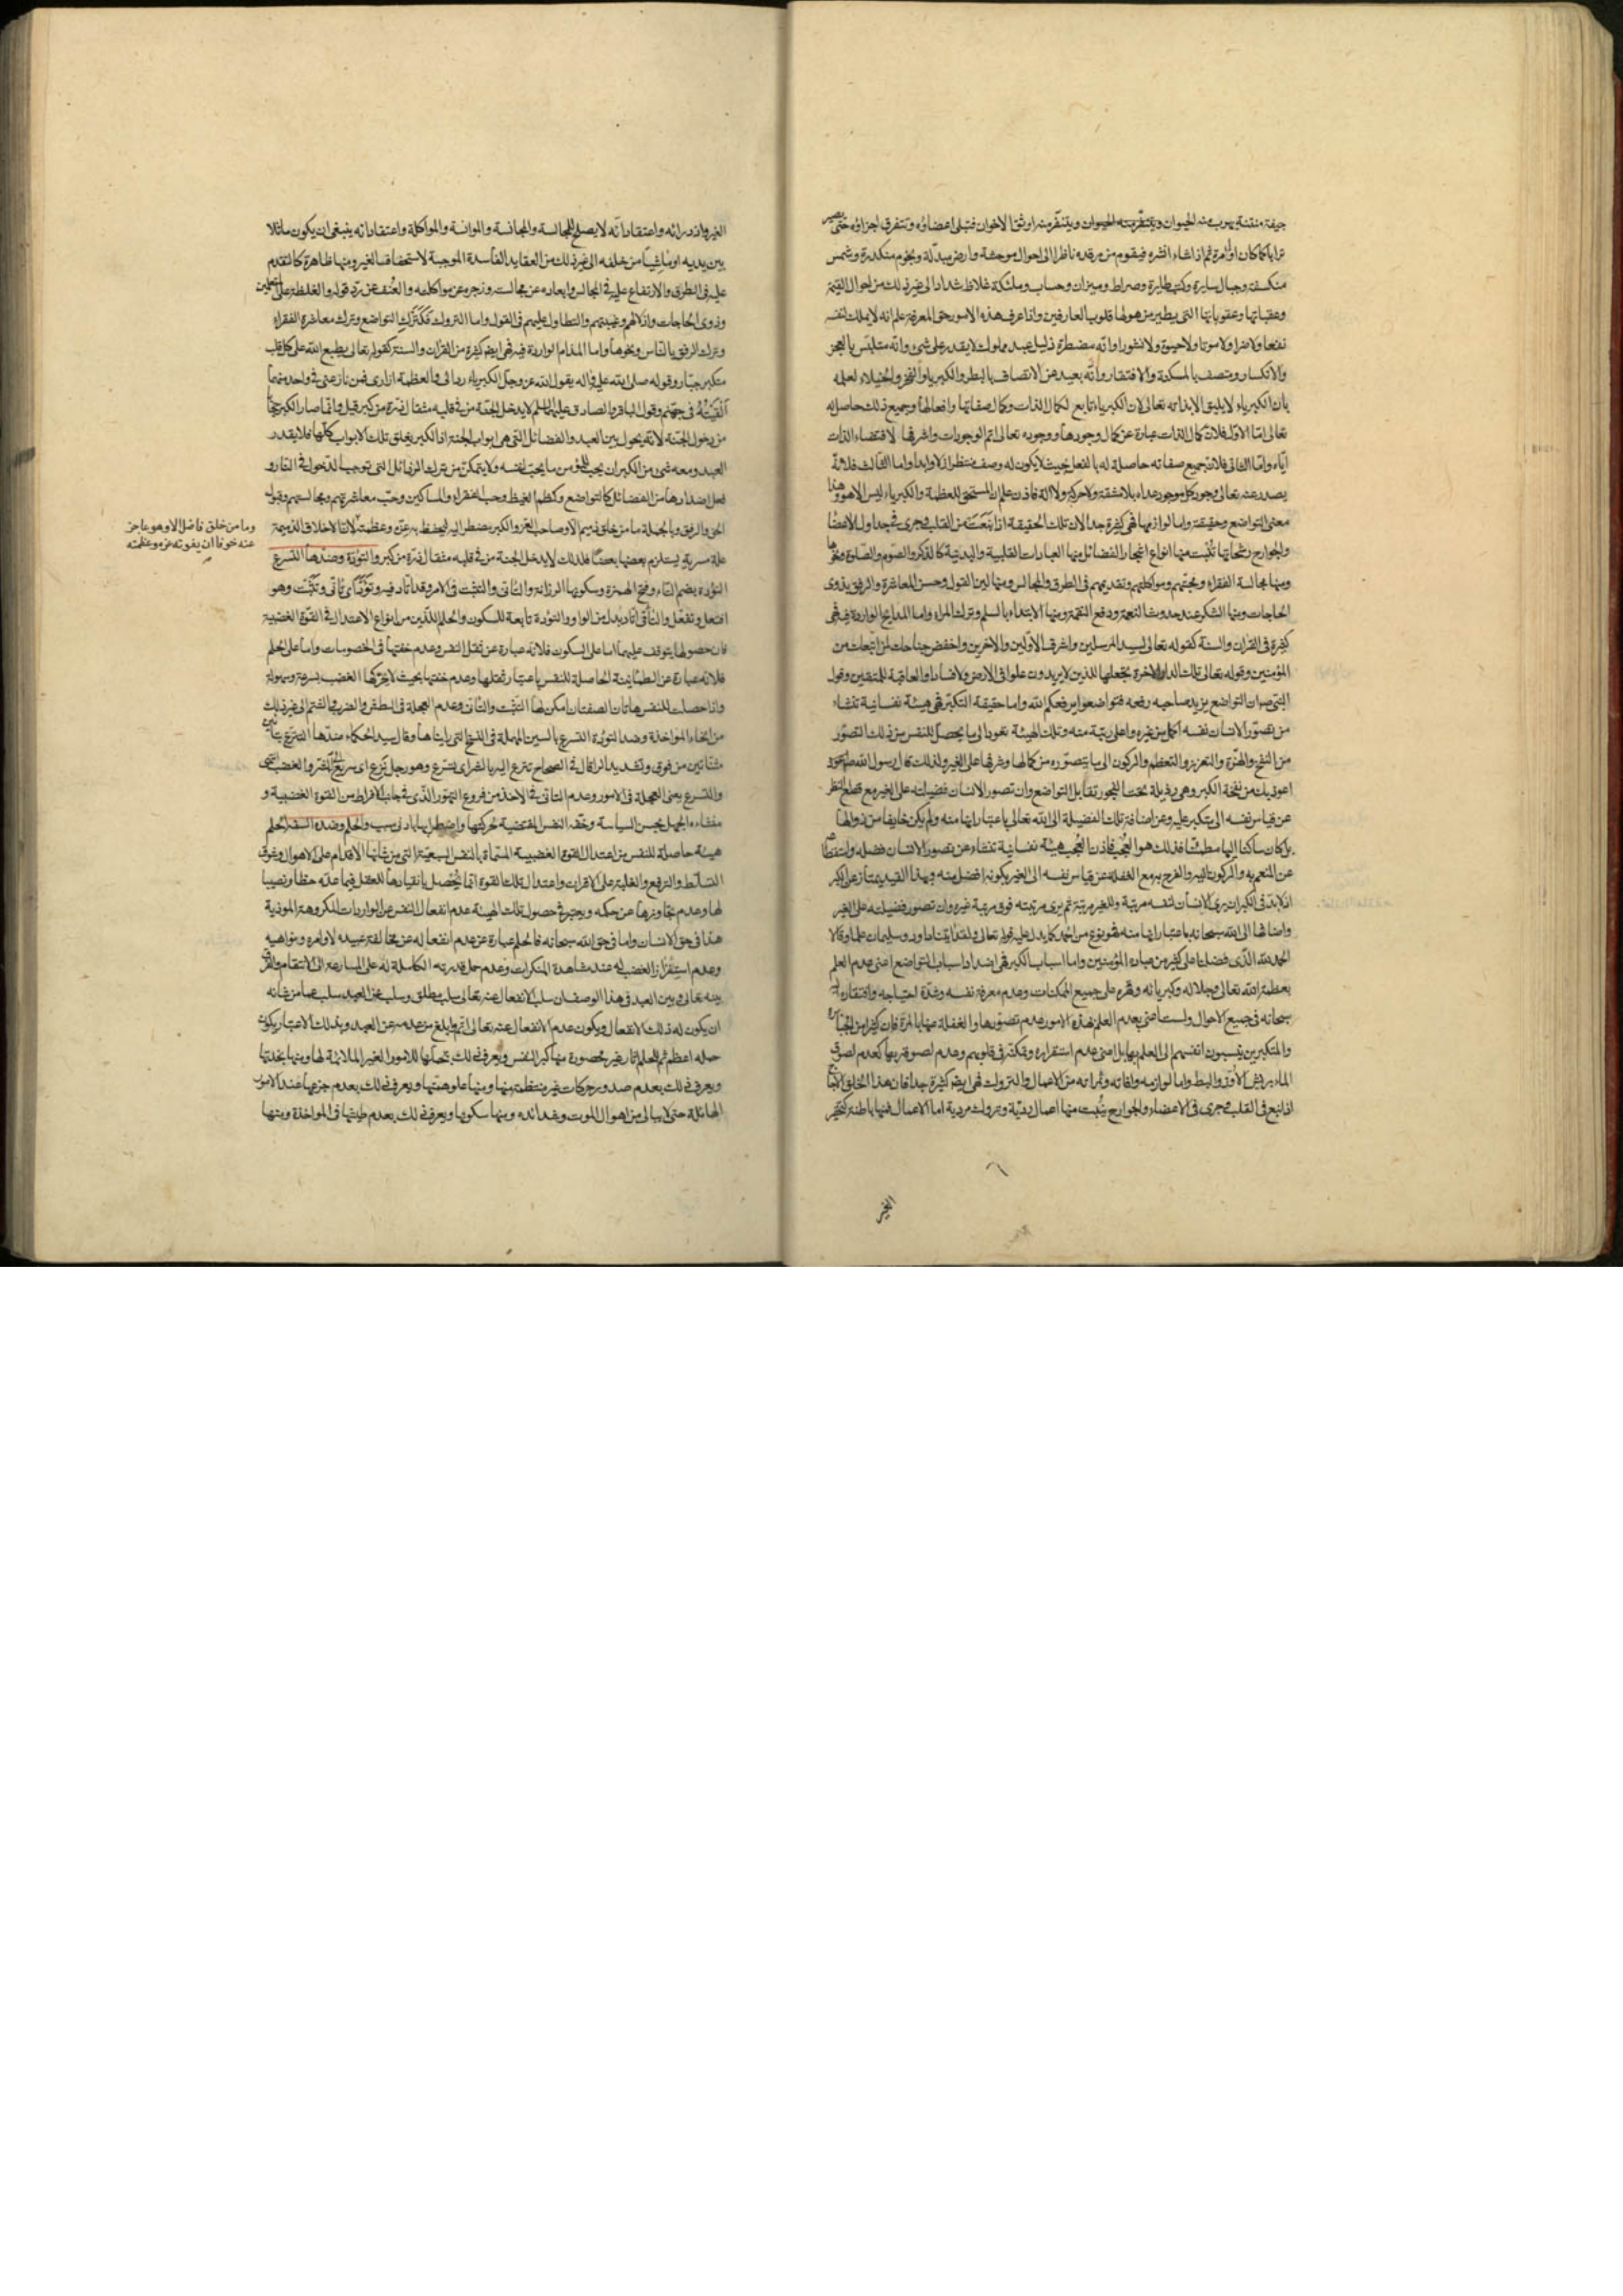 جيفة منتنة يهرب منه الحيوان ويتنفّر منه الحيوان ويتنفّر منه اوثق الاخوان فتبلى اعضاؤه وتتفرق اجزاؤه حتى يصير
ترابا كما كان اول مرة ثم اذا شاء انشره فيقوم من مرقده ناظرا الى احوال موحشة وارض مبدّلة ونجوم منكدرة وشمس
منكسفة وجبال سايرة وكتب طايرة وصراط وميزان وحساب وملئكة غلاظ شداد الى غير ذلك من احوال القيمة
وعقباتها وعقوباتها التى يطير من هولها قلوب العارفين واذا عرف هذه الامور حق المعرفة علم انه لا يملك لنفسه
نفعا ولا ضرا ولا موتا ولا حيوة ولا نشورا وانّه مضطر ذليل عبد مملوك لا يقدر على شئ وانّه متلبّس بالعجز
والانكسار ومتصف بالمسكنة والافتقار وانّه بعيد عن الاتصاف بالبطر والكبرياء والفخر والخيلاء لعلمه
بأن الكبرياء لا يليق الا بذاته تعالى لان الكبرياء تابع لكمال الذات وكمال صفاتها وافعالها وجميع ذلك حاصل له
تعالى امّا الاوّل فلانّ كمال الذات عبارة عن كمال وجودها ووجوبه تعالى اتم الوجودات واشرفها لاقتضاء الذات
ايّاه وامّا الثانى فلانّ جميع صفاته حاصلة له بالفعل بحيث لا يكون له وصف منتظر ازلا وابدا واما الثالث فلانّه
يصدر عنه تعالى وجود كل موجود عداه بلا مشقة ولا حركة ولا الة فاذن علم ان المستحق للعظمة والكبرياء ليس الا هو وهذا
معنى التواضع وحقيقته واما لوازمها فهى كثيرة جدا لان تلك الحقيقة اذا نبعت من القلب وجرى فى جداول الاعضا
والجوارح رشحاتها تنبت منها انواع اشجار الفضائل منها العبادات القلبية والبدنية كالذكر والصوم والصلوة ونحوها
ومنها مجالسة الفقراء ومحبّتهم ومواكلتهم وتقديمهم فى الطرق والمجالس ومنها لين القول وحسن المعاشرة والرفق بذوى
الحاجات ومنها الشكر عند حدوث النعمة ودفع النقمة ومنها الابتداء بالسلم وترك المراء واما المدايح الواردة فيه فهى
كثيرة فى القران والسنة كقوله تعالى لسيد المرسلين واشرف الاوّلين والاخرين واخفض جناحك لمن اتبعك من
المؤمنين وقوله تعالى تلك الدار الاخرة نجعلها للذين لا يريدون علوا فى الارض ولا فسادا والعاقبة للمتقين وقول
النبى ص ان التواضع يزيد صاحبه رفعه فتواضعوا يرفعكم الله واما حقيقة التكبر فهى هيئة نفسانية تنشاء
من تصوّر الانسان نفسه اكمل من غيره واعلى رتبة منه وتلك الهيئة تعود الى ما يحصل للنفس من ذلك التصوّر
من النفخ والهزّة والتعزيز والتعظم والركون الى ما يتصوّره من كمالها وشرفها على الغير ولذلك قال رسول الله صلعم
اعوذ بك من نفخة الكبر وهى رذيلة تحت الفجور تقابل التواضع وان تصور الانسان فضيلته على الغير مع قطع النظر
عن قياس نفسه الى متكبر عليه وعن اضافة تلك الفضيلة الى الله تعالى باعتبار انها منه ولم يكن خايفا من زوالها
بل كان ساكنا اليها مطمئنّا فذلك هو العُجب فاذن العُجب هيئة نفسانية تنشاء عن تصور الانسان فضله واستقطاعه
عن المنعم به والركون اليه والفرح به مع الغفلة عن قياس نفسه الى الغير بكونه افضل منه وبهذا القيد يمتاز عن الكبر
اذ لابدّ فى الكبر ان يرى الانسان لنفسه مرتبة وللغير مرتبة ثم يرى مرتبته فوق مرتبة غيره وان تصور فضيلته على الغير
واضافها الى الله سبحانه باعتبار انها منه فهو نوع من الحمد كما يدل عليه قوله تعالى ولقد اتينا داود وسليمان علما وقالا
الحمد لله الذى فضلنا على كثير من عباده المؤمنين واما اسباب الكبر فهى اضداد اسباب التواضع اعنى عدم العلم
بعظمة الله تعالى وجلاله وكبريائه وقهره على جميع الممكنات وعدم معرفة نفسه وشدّة احتياجه وافتقاره اليه
سبحانه فى جميع الاحوال ولست اعنى بعدم العلم بهذه الامور عدم تصوّرها والغفلة عنها بالمرّة فان كثيرا من الجبّارة
والمتكبرين ينسبون انفسهم الى العلم بها بل اعنى عدم استقراره وتمكنه فى قلوبهم وعدم لصوقه بها كعدم لصوق
الماء بريش الاوزّ والبط واما لوازمه وافاته وثمراته من الاعمال والتروك فهى ايضا كثيرة جدا فان هذا الخلق
اذا نبع فى القلب وجرى فى الاعضاء والجوارح ينبت منها اعمال رديّة وتروك مردية اما الاعمال فمنها باطنة كتحقير
الغير
الغير وازدرائه واعتقاد انّه لا يصلح للمجالسة والمجانسة والموانسة والمواكلة واعتقاد انه ينبغى ان يكون ماثلا
بين يديه او ماشيا من خلفه الى غير ذلك من العقايد الفاسدة الموجبة لاستخفاف الغير ومنها ظاهرة كالتقدم
عليه فى الطرق والارتفاع عليه فى المجالس وابعاده عن مجالسته وزجره عن مواكلته والعنف عن ردّ قوله والغلظة على المتعلمين
وذوى الحاجات واذلالهم وغيبتهم والتطاول عليهم فى القول واما التروك فكترك التواضع وترك معاشرة الفقراء
وترك الرفق بالناس ونحوها واما المذام الواردة فيه فهى ايضا كثيرة من القران والسنة كقوله تعالى يطبع الله على كل قلب
متكبر جبّار وقوله صلى الله عليه واله يقول الله عز وجلّ الكبرياء ردائى والعظمة ازارى فمن نازعنى فى واحد منهما
القيته فى جهنّم وقول الباقر والصادق عليهما السلم لا يدخل الجنّة من فى قلبه مثقال ذرّة من كبر قيل وانما صار الكبر حجابا
من دخول الجنّة لانه يحول بين العبد والفضائل التى هى ابواب الجنة اذ الكبر يغلق تلك الابواب كلها فلا يقدر
العبد ومعه شئ من الكبر ان يحب للمؤمن ما يحبّ لنفسه ولا يتمكّن من ترك الرذائل التى توجب الدخول فى النار و
فعل اضدادها من الفضائل كالتواضع وكظم الغيظ وحب الفقراء والمساكين وحبّ معاشرتهم ومجالستهم وقبول
الحق والرفق وبالجملة ما من خلق ذميم الا وصاحب العز والكبر مضطر اليه ليحفظ به عزّه وعظمته لان الاخلاق الذميمة
وما من خلق فاضل الا وهو عاجز
عنه خوفا ان يفوته عزه وعظمته
علة مسرية يستلزم بعضها بعضا فلذلك لا يدخل الجنة من فى قلبه مثقال ذرّة من كبر والتؤدة وضدّها التسرع
التؤدة بضم التاء وفتح الهمزة وسكونها الرزانة والتأنى والتثبت فى الامر وقد اتّأد فيه وتوأّد اى تأنّى وتثبّت وهو
افتعل وتفعّل والتأفى اتّأد بدل من الواو والتؤدة تابعة للسكون والحلم اللذين من انواع الاعتدال فى القوة الغضبية
فان حصولها يتوقف عليهما اما على السكون فلانّه عبارة عن ثقل النفس وعدم خفتها فى الخصومات واما على الحلم
فلانه عبارة عن الطمأنينة الحاصلة للنفس باعتبار ثقلها وعدم خفتها بحيث لا يحرّكها الغضب بسرعة وسهولة
واذا حصلت للنفس هاتان الصفتان امكن لها التثبّت والتأنّى وعدم العجلة فى البطش والضرب والشتم الى غير ذلك
من انحاء المواخذة وضد التؤدة التسرع بالسين المهملة فى النسخ التى رايناها وقال سيد الحكماء ضدّها التترع بتائين
مثناتين من فوق وتشديد الراء قال فى الصحاح تترع اليه بالشر اى يتسرع وهو رجل ترع اى سريع الى الشر والغضب انتهى
والتسرع يعنى العجلة فى الامور وعدم التأنى فى الاخذ من فروع التهور الذى فى جانب الافراط من القوة الغضبية و
منشاءه الجهل بحسن السياسة وخفّة النفس المقتضية لحركتها واضطرابها بادنى سبب والحلم وضده السفه الحلم
هيئة حاصلة للنفس من اعتدال القوة الغضبية المسمّاة بالنفس السبعيّة التى من شأنها الاقدام على الاهوال وشوق
التسلّط والترفع والغلبة على الاقران واعتدال تلك القوة انما يحصل بانقيادها للعقل فيما عدّه حظا ونصيبا
لها وعدم تجاوزها عن حكمه ويعتبر فى حصول تلك الهيئة عدم انفعال النفس عن الواردات المكروهة الموذية
هذا فى حق الانسان واما فى حق الله سبحانه فالحلم عبارة عن عدم انفعاله عن مخالفة عبيده لاوامره ونواهيه
وعدم استفزاز الغضب له عند مشاهدة المنكرات وعدم حمل قدرته الكاملة له على المسارعة الى الانتقام والفرق
بينه تعالى وبين العبد فى هذا الوصف ان سلب الانفعال عنه تعالى سلب مطلق وسلبه عن العبد سلب عما من شانه
ان يكون له ذلك الانفعال ويكون عدم الانفعال عنه تعالى اتم وابلغ من عدمه عن العبد وبذلك الاعتبار يكون
حلمه اعظم ثم للحلم اثار غير محصورة منها كبر النفس ويعرف ذلك بتحملها للامور الغير الملائمة لها ومنها نجدتها
ويعرف ذلك بعدم صدور حركات غير منتظمة منها ومنها علو همتها ويعرف ذلك بعدم جزعها عند الامور
الهائلة حتى لا يبالى من اهوال الموت وشدائده ومنها سكونها ويعرف ذلك بعدم طيشها فى المواخذة ومنها